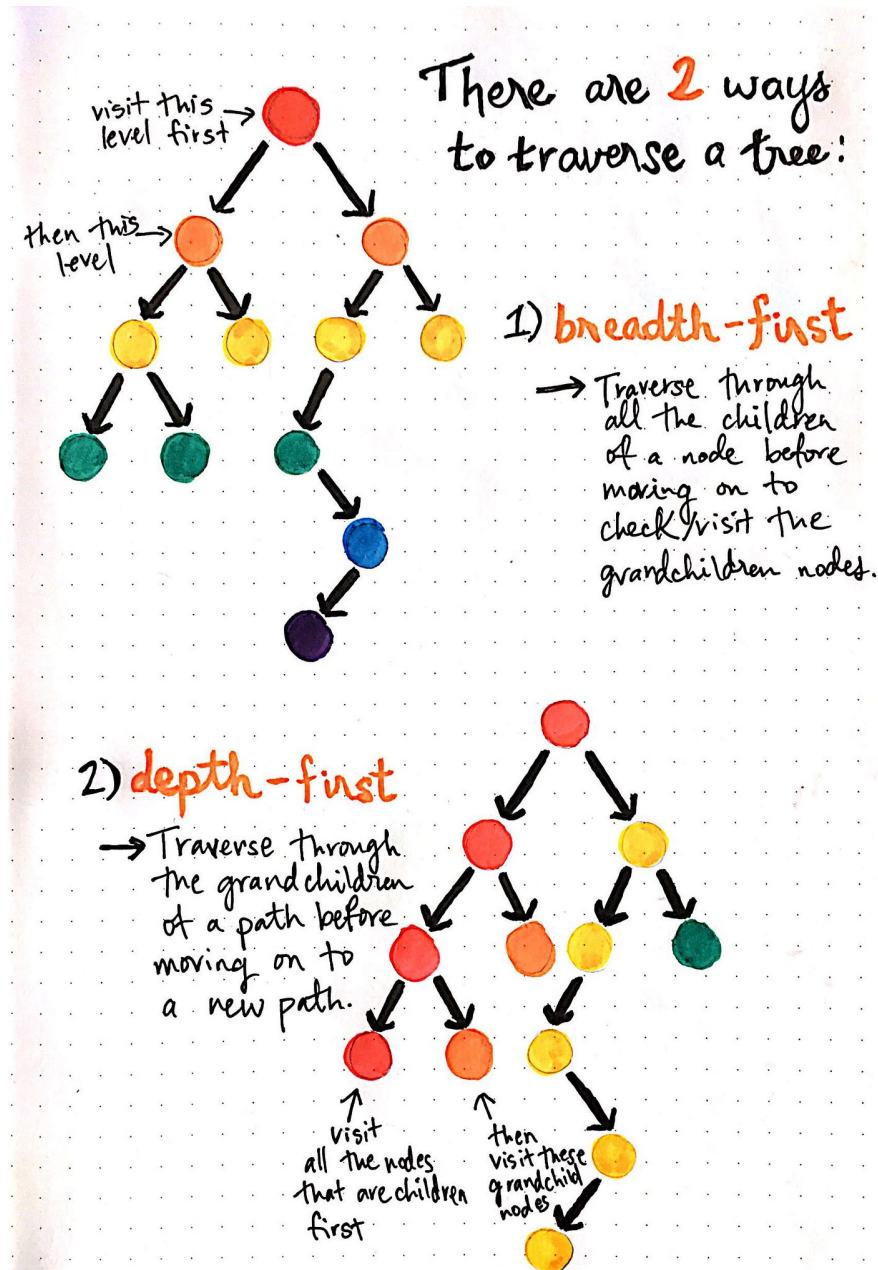 There are 2 ways
to traverse a tree:
visit this
level first
then this
level
1) breadth-first
→ Traverse through
all the children
of a node before
moving on to
check/visit the
grandchildren nodes.
2) depth-first
→ Traverse through
the grandchildren
of a path before
moving on to
a new path.
visit
all the nodes
that are children
first
then
visit these
grandchild
nodes